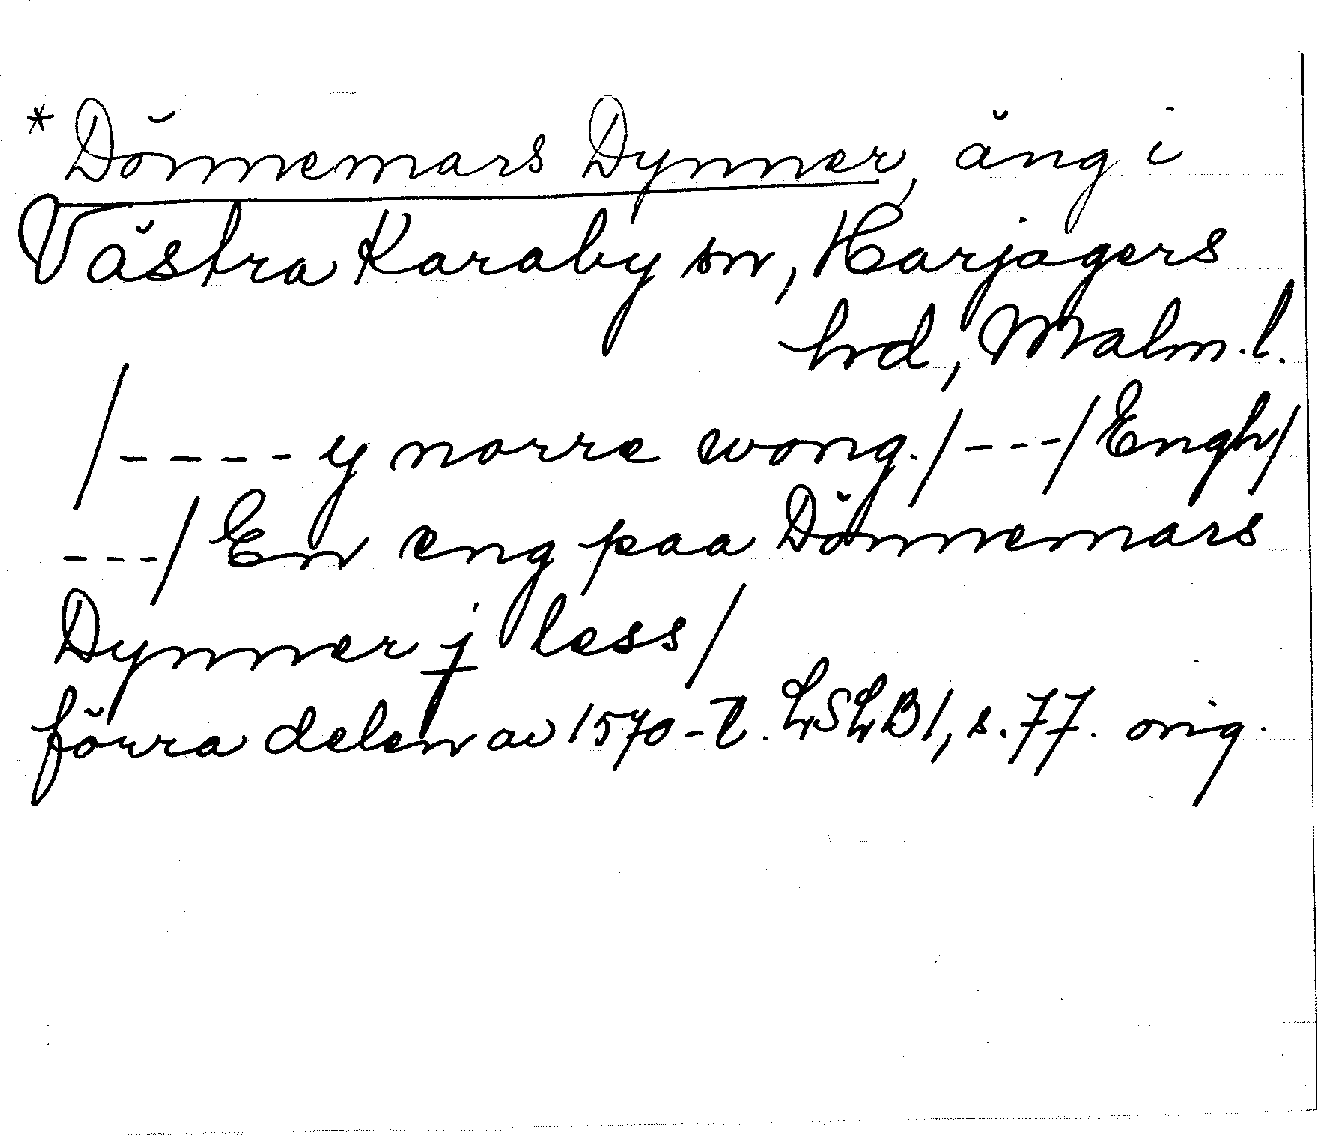 *Dönnemars Dynner, äng i
Västra Karaby sn, Harjagers
hd, Malm.l.
/---- y norre wong./---/Engh/
---/En eng paa Dönnemars
Dynner j less/
förra delen av 1570-t. LSLB1, s.77. orig.